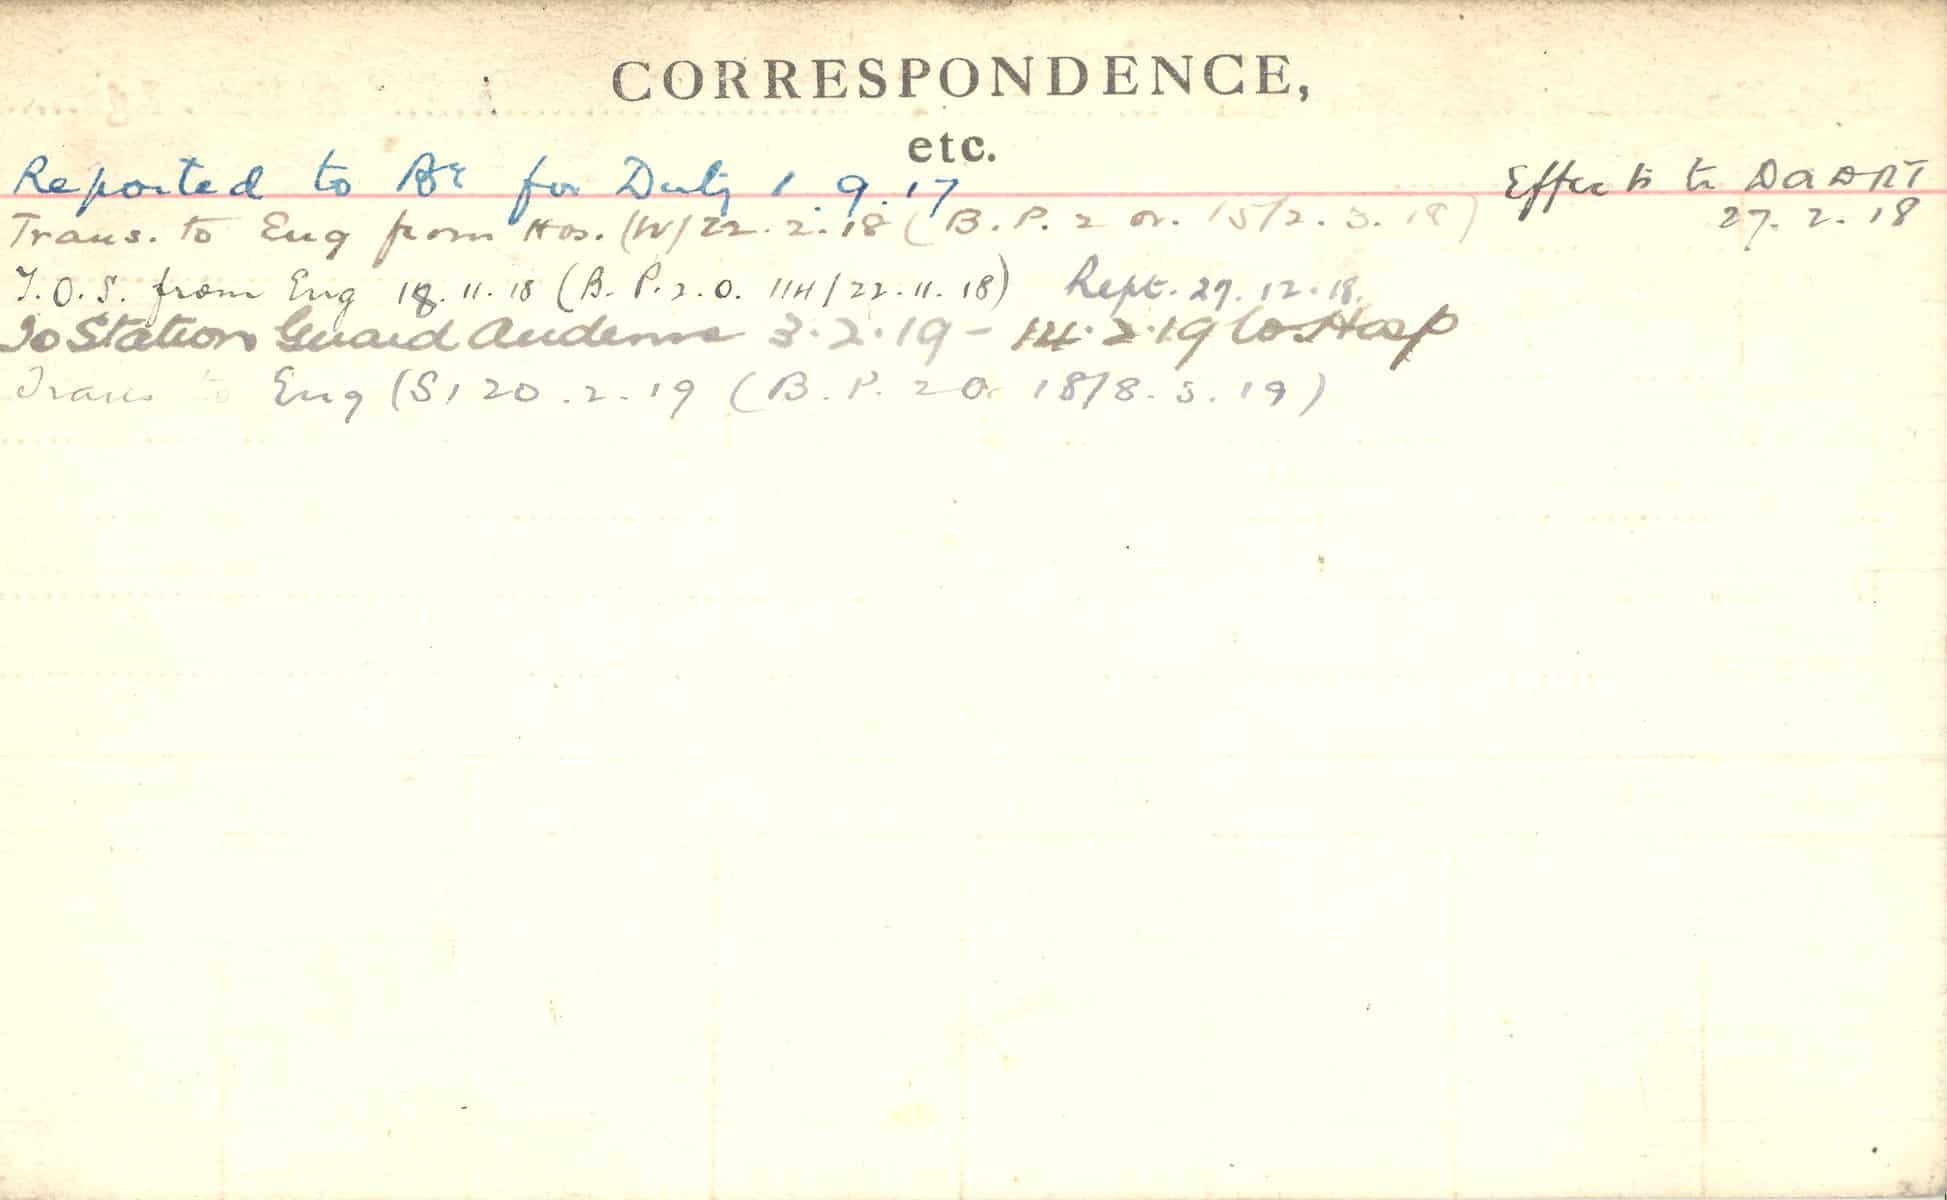 CORRESPONDENCE,
etc.
Reported to for Duty 1.9.17
Effects to DADRT
27.2.18
Trans. to Eng from Hos. (W) 22.2.18 (B.P.2 or. 15/2.3.18)
T.O.S. from Eng 18.11.18 (B.P.2.O. 114/22.11.18) Rept. 27.12.18.
To Station Guard Audenne 3.2.19 - 14.2.19 to Hosp
Trans to Eng (S) 20.2.19 (B.P.2O. 18/8.3.19)